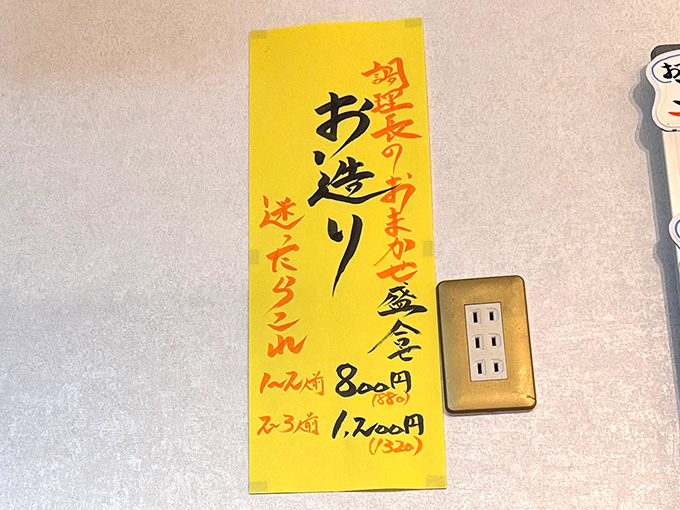 調理長のおまかせ盛合せ
お造り
迷ったらコレ
1~2人前 800円
(880)
2~3人前 1,200円
(1320)
お